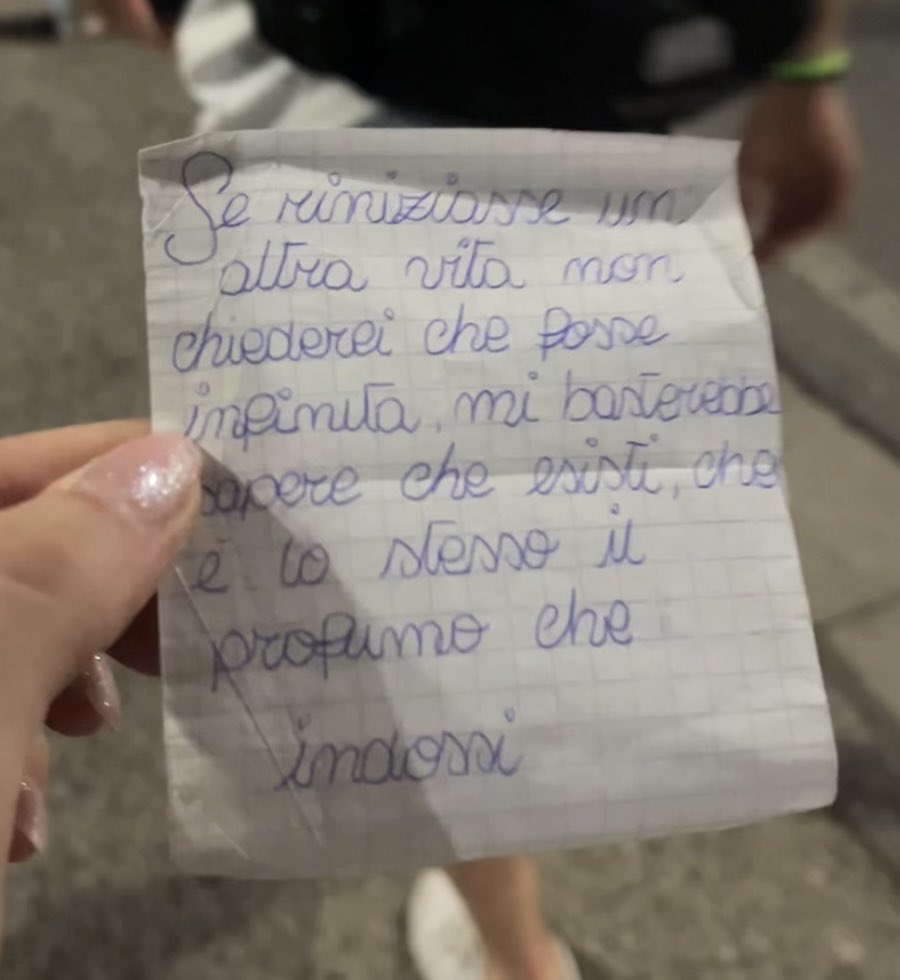 Se riniziasse un'
altra vita non
chiederei che fosse
infinita, mi basterebbe
sapere che esisti, che
è lo stesso il
profumo che
indossi